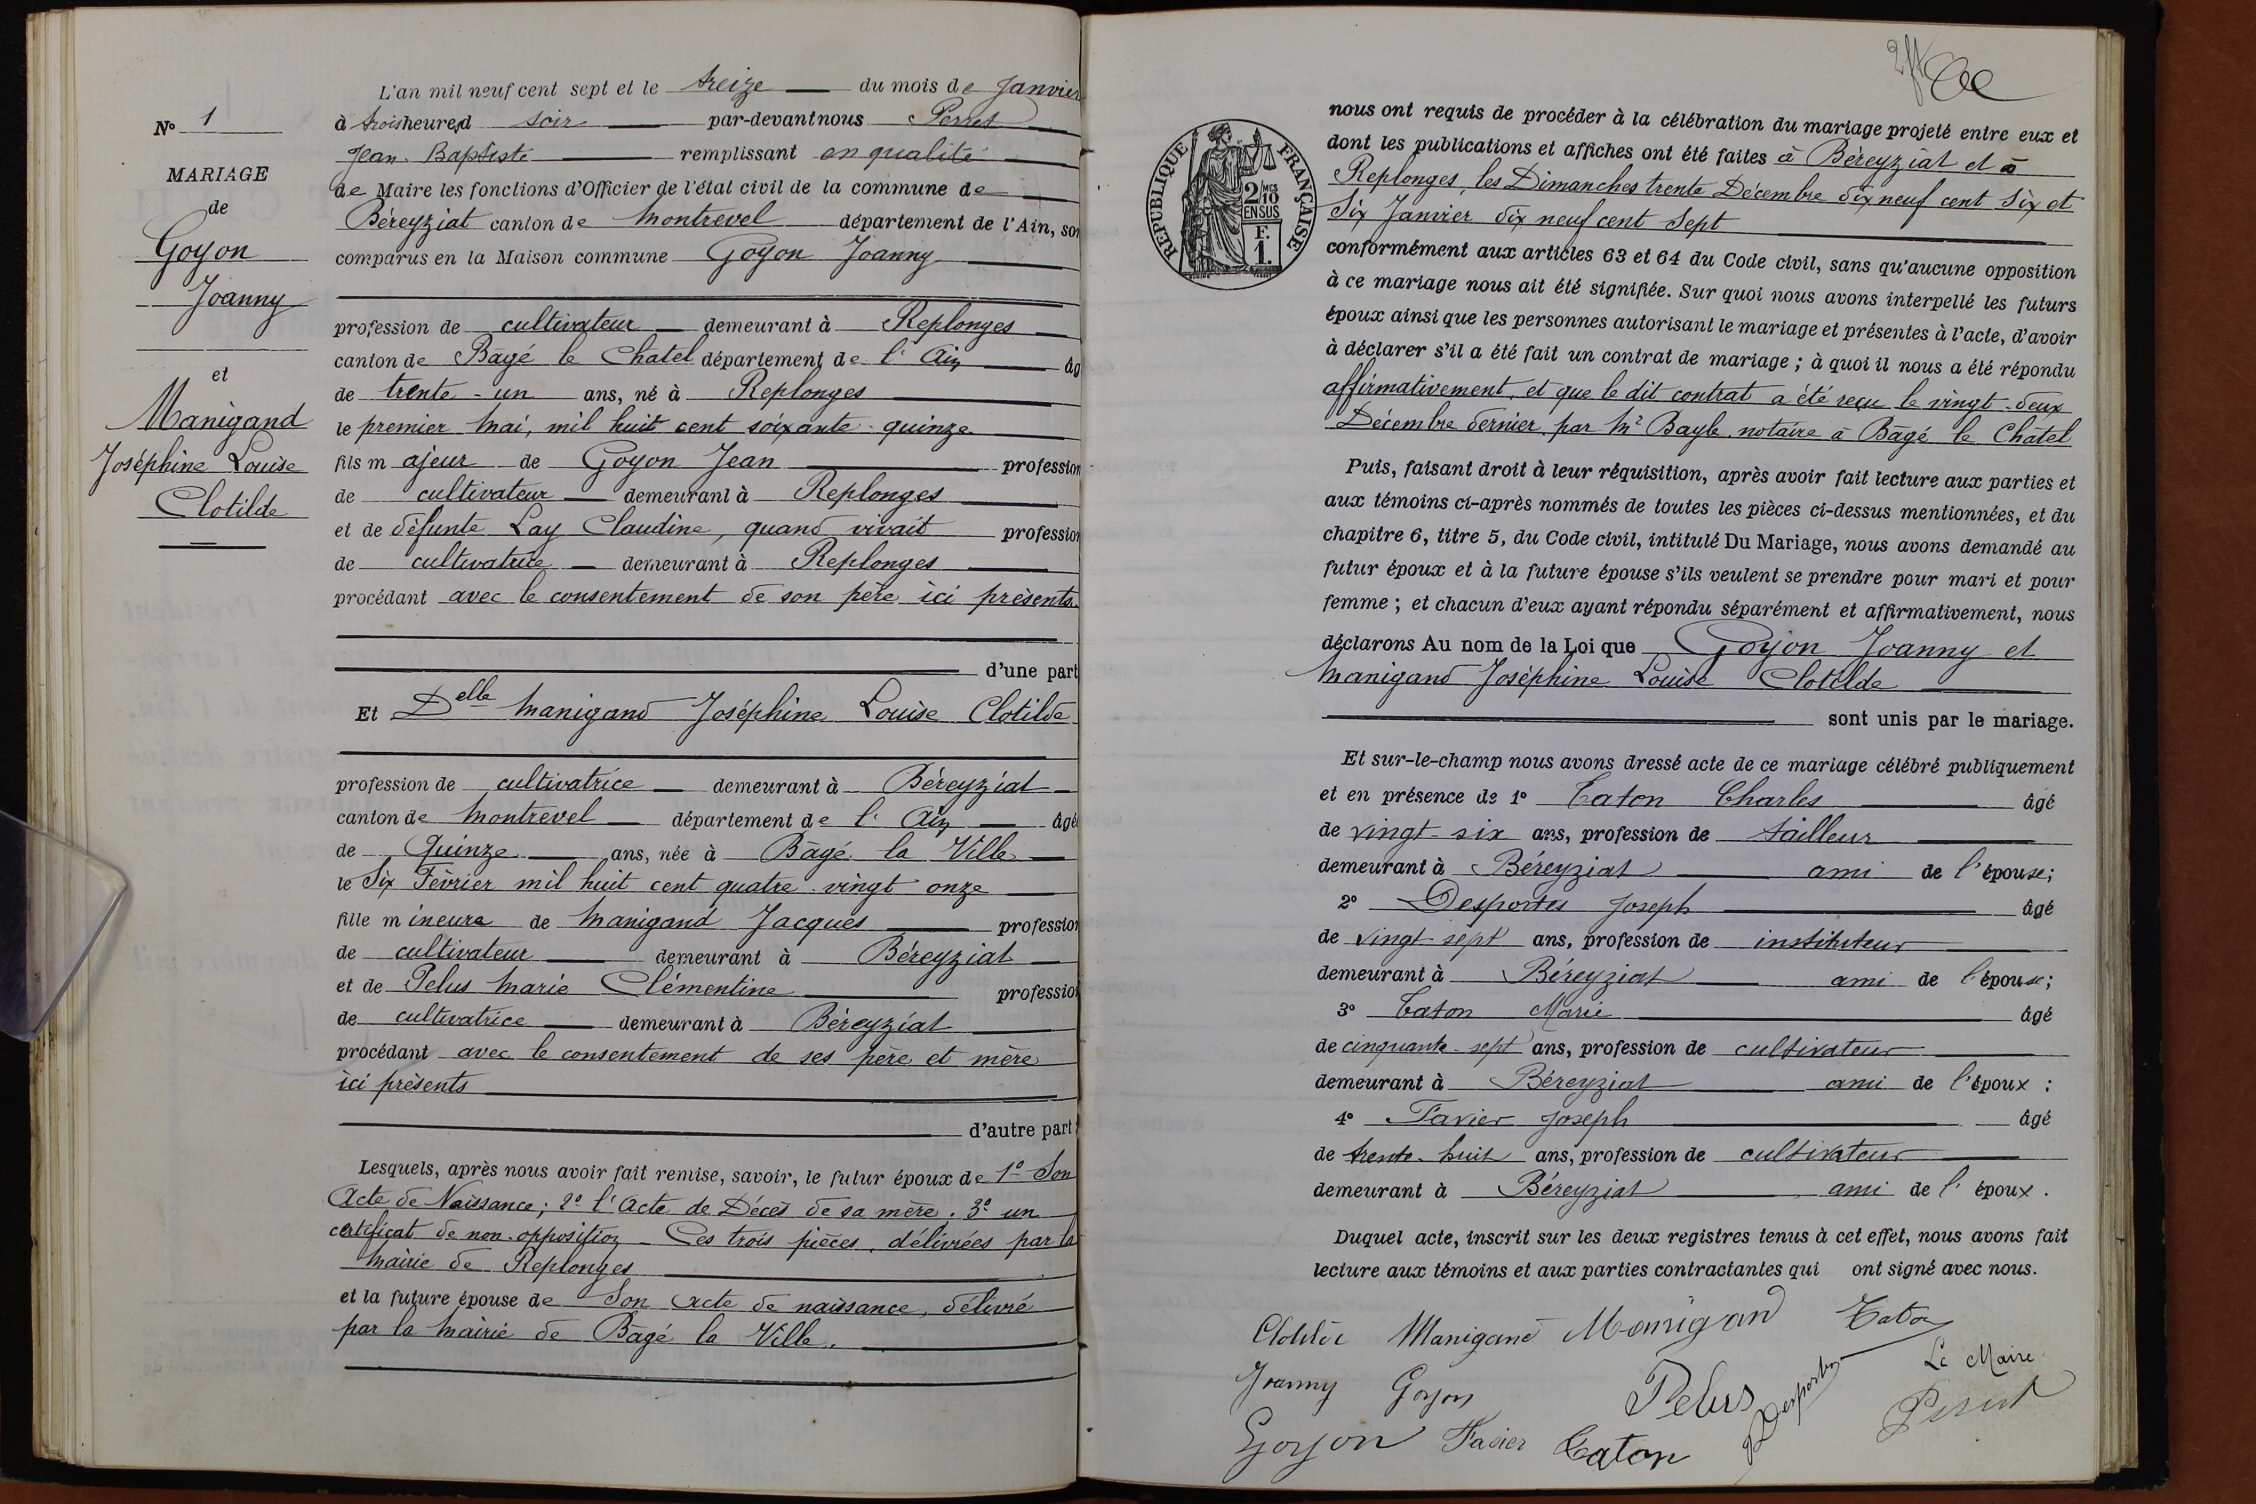 N° 1
MARIAGE
de
Goyon
Joanny
et
Manigand
Joséphine Louise
Clotilde
L'an mil neuf cent sept et le treize du mois de Janvier
à trois heures d soir par-devant nous Perret
Jean-Baptiste remplissant en qualité
de Maire les fonctions d'Officier de l'état civil de la commune de
Béreyziat canton de Montrevel département de l'Ain, son
comparus en la Maison commune Goyon Joanny
profession de cultivateur demeurant à Replonges
canton de Bâgé le Chatel département de l'Ain âg
de trente-un ans, né à Replonges
le premier Mai, mil huit cent soixante-quinze
fils majeur de Goyon Jean profession
de cultivateur demeurant à Replonges
et de défunte Lay Claudine, quand vivait profession
de cultivatrice demeurant à Replonges
procédant avec le consentement de son père ici présents.
d'une part
Et Delle Manigand Joséphine Louise Clotilde
profession de cultivatrice demeurant à Béreyziat
canton de Montrevel département de l'Ain âgé
de Quinze ans, née à Bâgé la Ville
le Six Février mil huit cent quatre-vingt onze
fille mineure de Manigand Jacques profession
de cultivateur demeurant à Béreyziat
et de Pelus Marie Clémentine profession
de cultivatrice demeurant à Béreyziat
procédant avec le consentement de ses père et mère
ici présents
d'autre part
Lesquels, après nous avoir fait remise, savoir, le futur époux de 1° Son
Acte de Naissance; 2° l'Acte de Décès de sa mère. 3° un
certificat de non-opposition - Ces trois pièces, délivrées par la
Mairie de Replonges
et la future épouse de Son acte de naissance, délivré
par la Mairie de Bâgé la Ville.
RÉPUBLIQUE FRANÇAISE
2/10 MES
EN SUS
F.
1.
nous ont requis de procéder à la célébration du mariage projeté entre eux et
dont les publications et affiches ont été faites à Béreyziat et à
Replonges, les Dimanches trente Décembre dix neuf cent Six et
Six Janvier dix neuf cent Sept
conformément aux articles 63 et 64 du Code civil, sans qu'aucune opposition
à ce mariage nous ait été signifiée. Sur quoi nous avons interpellé les futurs
époux ainsi que les personnes autorisant le mariage et présentes à l'acte, d'avoir
à déclarer s'il a été fait un contrat de mariage; à quoi il nous a été répondu
affirmativement, et que le dit contrat a été reçu le vingt-deux
Décembre dernier, par Me Bayle, notaire à Bâgé le Châtel
Puis, faisant droit à leur réquisition, après avoir fait lecture aux parties et
aux témoins ci-après nommés de toutes les pièces ci-dessus mentionnées, et du
chapitre 6, titre 5, du Code civil, intitulé Du Mariage, nous avons demandé au
futur époux et à la future épouse s'ils veulent se prendre pour mari et pour
femme; et chacun d'eux ayant répondu séparément et affirmativement, nous
déclarons Au nom de la Loi que Goyon Joanny et
Manigand Joséphine Louise Clotilde
sont unis par le mariage.
Et sur-le-champ nous avons dressé acte de ce mariage célébré publiquement
et en présence de 1° Caton Charles âgé
de vingt-six ans, profession de tailleur
demeurant à Béreyziat ami de l'épouse;
2° Desportes Joseph âgé
de vingt-sept ans, profession de instituteur
demeurant à Béreyziat ami de l'épouse;
3° Caton Marie âgé
de cinquante-sept ans, profession de cultivateur
demeurant à Béreyziat ami de l'époux:
4° Favier Joseph âgé
de trente-huit ans, profession de cultivateur
demeurant à Béreyziat ami de l'époux.
Duquel acte, inscrit sur les deux registres tenus à cet effet, nous avons fait
lecture aux témoins et aux parties contractantes qui ont signé avec nous.
Clotilde Manigand Manigand Caton
Joanny Goyon Pelus Desportes Le Maire
Goyon Favier Caton Perret